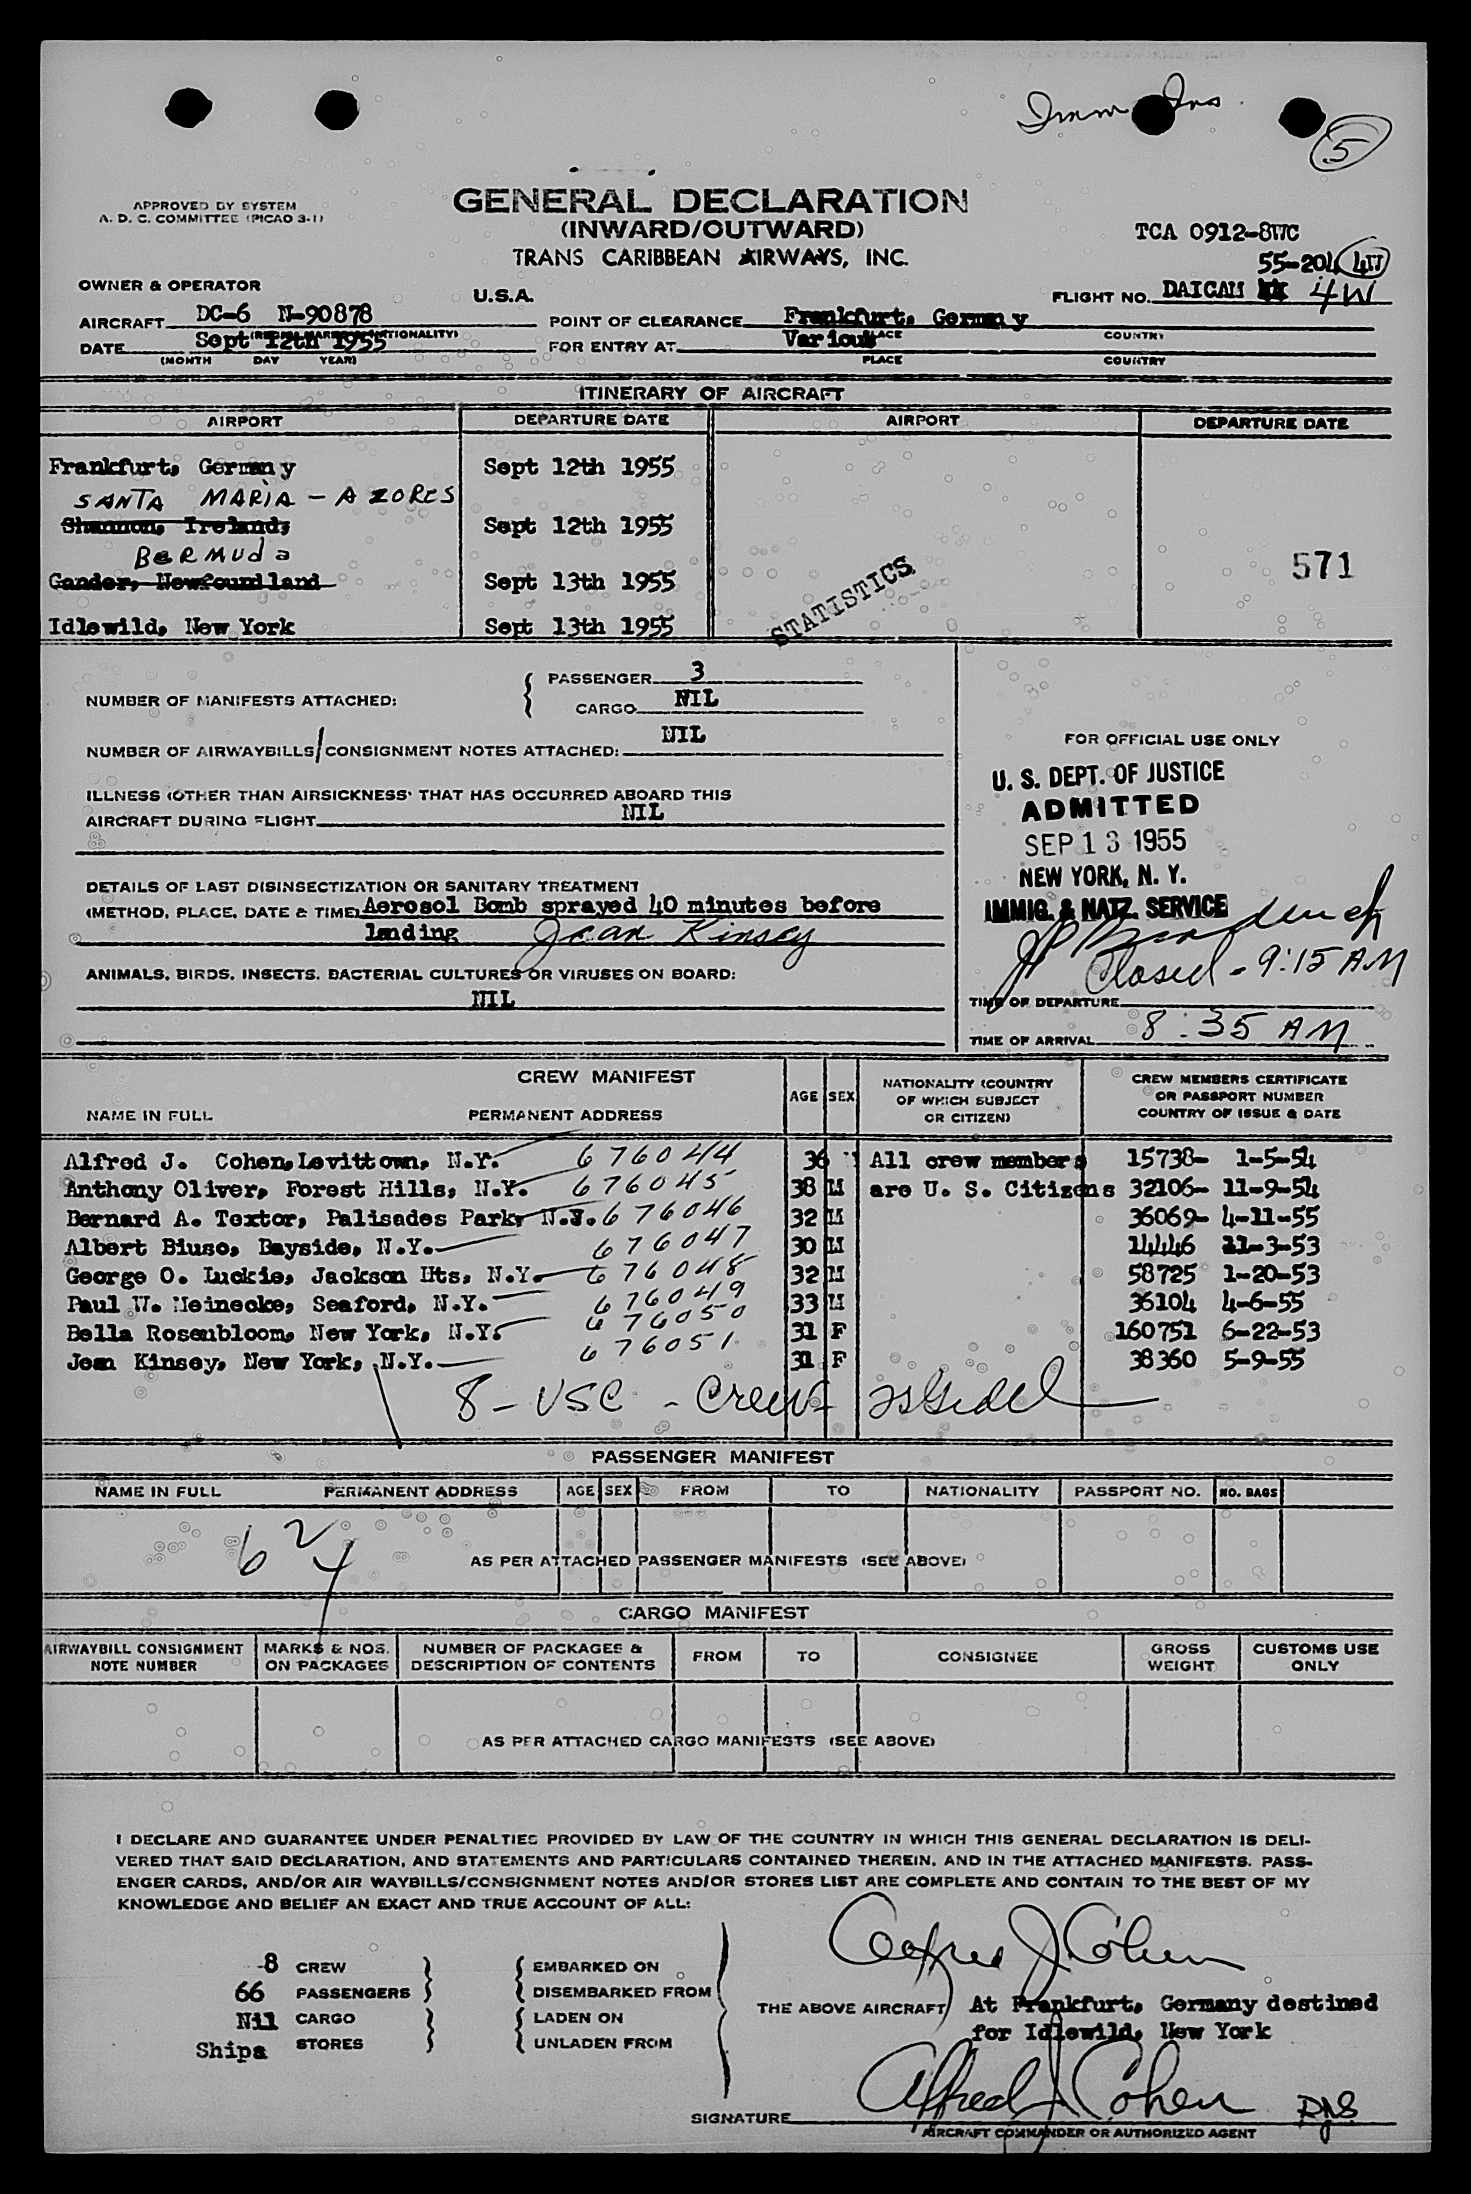 Imm Ins
5
APPROVED BY SYSTEM
A. D. C. COMMITTEE (PICAO 3-1)
GENERAL DECLARATION
(INWARD/OUTWARD)
TRANS CARIBBEAN AIRWAYS, INC.
TCA 0912-8WC
55-204 4W
OWNER & OPERATOR
U.S.A.
FLIGHT NO. DAICAM 4W
AIRCRAFT DC-6 N-90878
POINT OF CLEARANCE Frankfurt, Germany
PLACE COUNTRY
DATE Sept 12th 1955
(MONTH DAY YEAR)
FOR ENTRY AT Various
PLACE COUNTRY
ITINERARY OF AIRCRAFT
AIRPORT DEPARTURE DATE AIRPORT DEPARTURE DATE
Frankfurt, Germany Sept 12th 1955
SANTA MARIA - AZORES
Shannon, Ireland, Sept 12th 1955
BERMUda
Gander, Newfoundland Sept 13th 1955
571
STATISTICS
Idlewild, New York Sept 13th 1955
NUMBER OF MANIFESTS ATTACHED:
PASSENGER 3
CARGO NIL
NUMBER OF AIRWAYBILLS/CONSIGNMENT NOTES ATTACHED: NIL
ILLNESS (OTHER THAN AIRSICKNESS) THAT HAS OCCURRED ABOARD THIS
AIRCRAFT DURING FLIGHT NIL
DETAILS OF LAST DISINSECTIZATION OR SANITARY TREATMENT
(METHOD, PLACE, DATE & TIME) Aerosol Bomb sprayed 40 minutes before
landing Jean Kinsey
ANIMALS, BIRDS, INSECTS, BACTERIAL CULTURES OR VIRUSES ON BOARD:
NIL
FOR OFFICIAL USE ONLY
U. S. DEPT. OF JUSTICE
ADMITTED
SEP 13 1955
NEW YORK, N. Y.
IMMIG. & NATZ. SERVICE
Closed - 9:15 AM
TIME OF DEPARTURE
TIME OF ARRIVAL 8:35 AM
CREW MANIFEST
NAME IN FULL PERMANENT ADDRESS AGE SEX NATIONALITY (COUNTRY OF WHICH SUBJECT OR CITIZEN) CREW MEMBERS CERTIFICATE OR PASSPORT NUMBER COUNTRY OF ISSUE & DATE
Alfred J. Cohen, Levittown, N.Y. 676044 36 M All crew members 15738- 1-5-54
Anthony Oliver, Forest Hills, N.Y. 676045 38 M are U. S. Citizens 32106- 11-9-54
Bernard A. Textor, Palisades Park, N.J. 676046 32 M 36069- 4-11-55
Albert Biuso, Bayside, N.Y. 676047 30 M 14446 11-3-53
George O. Luckie, Jackson Hts, N.Y. 676048 32 M 58725 1-20-53
Paul W. Meinecke, Seaford, N.Y. 676049 33 M 36104 4-6-55
Bella Rosenbloom, New York, N.Y. 676050 31 F 160751 6-22-53
Jean Kinsey, New York, N.Y. 676051 31 F 38360 5-9-55
8 - USC - Crew
PASSENGER MANIFEST
NAME IN FULL PERMANENT ADDRESS AGE SEX FROM TO NATIONALITY PASSPORT NO. NO. BAGS
6 2 4
AS PER ATTACHED PASSENGER MANIFESTS (SEE ABOVE)
CARGO MANIFEST
AIRWAYBILL CONSIGNMENT NOTE NUMBER MARKS & NOS. ON PACKAGES NUMBER OF PACKAGES & DESCRIPTION OF CONTENTS FROM TO CONSIGNEE GROSS WEIGHT CUSTOMS USE ONLY
AS PER ATTACHED CARGO MANIFESTS (SEE ABOVE)
I DECLARE AND GUARANTEE UNDER PENALTIES PROVIDED BY LAW OF THE COUNTRY IN WHICH THIS GENERAL DECLARATION IS DELI-
VERED THAT SAID DECLARATION, AND STATEMENTS AND PARTICULARS CONTAINED THEREIN, AND IN THE ATTACHED MANIFESTS, PASS-
ENGER CARDS, AND/OR AIR WAYBILLS/CONSIGNMENT NOTES AND/OR STORES LIST ARE COMPLETE AND CONTAIN TO THE BEST OF MY
KNOWLEDGE AND BELIEF AN EXACT AND TRUE ACCOUNT OF ALL:
Alfred J. Cohen
8 CREW EMBARKED ON
66 PASSENGERS DISEMBARKED FROM
Nil CARGO LADEN ON
Ships STORES UNLADEN FROM
THE ABOVE AIRCRAFT At Frankfurt, Germany destined
for Idlewild, New York
SIGNATURE Alfred J Cohen
AIRCRAFT COMMANDER OR AUTHORIZED AGENT